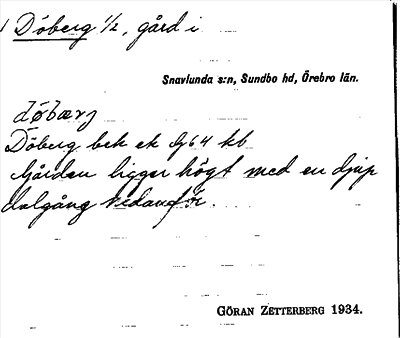 Döberg 1/2, gård i
Snavlunda s:n, Sundbo hd, Örebro län.
døbærj
Döberg bek ek Gj 64 kb
Gården ligger högt med en djup
dalgång nedanför.
GÖRAN ZETTERBERG 1934.